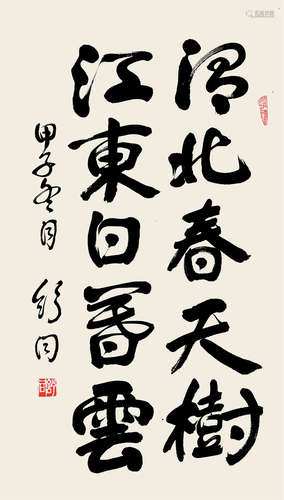 渭北春天樹
江東日暮雲
甲子冬月 舒同